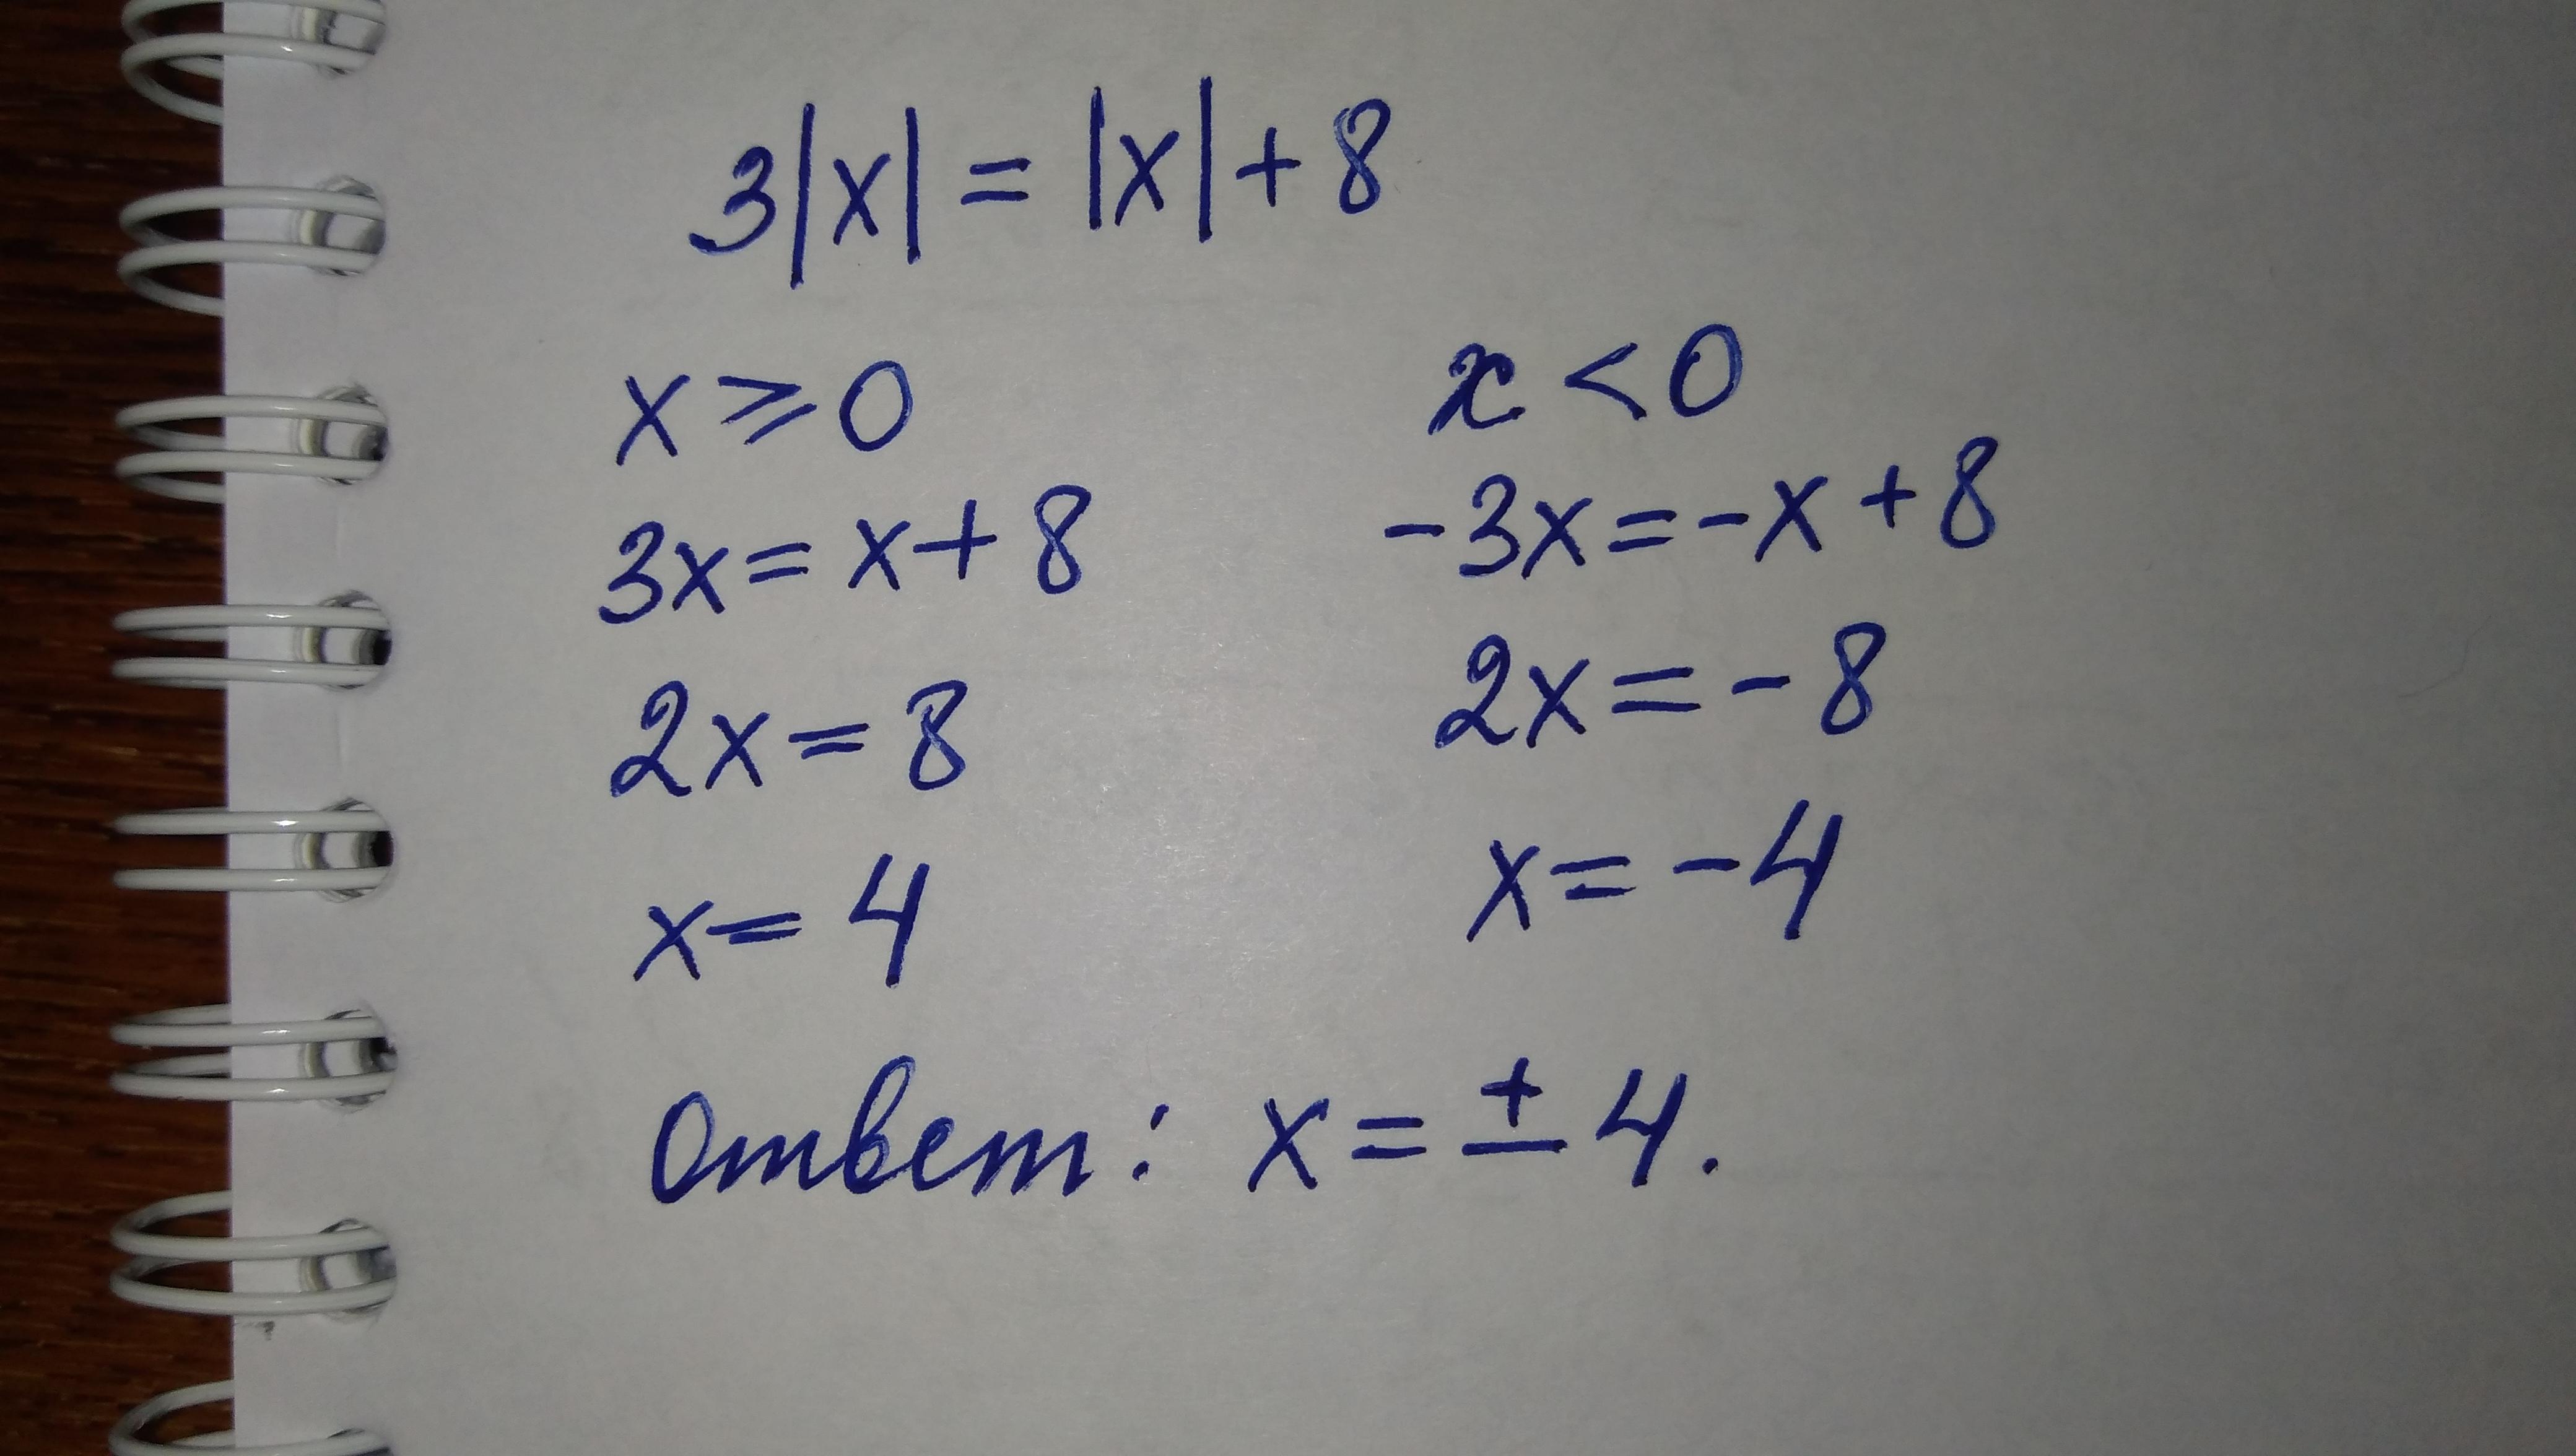 3|x| = |x| + 8
x ⩾ 0
3x = x + 8
2x = 8
x = 4
x < 0
-3x = -x + 8
2x = -8
x = -4
Ответ: x = ± 4.